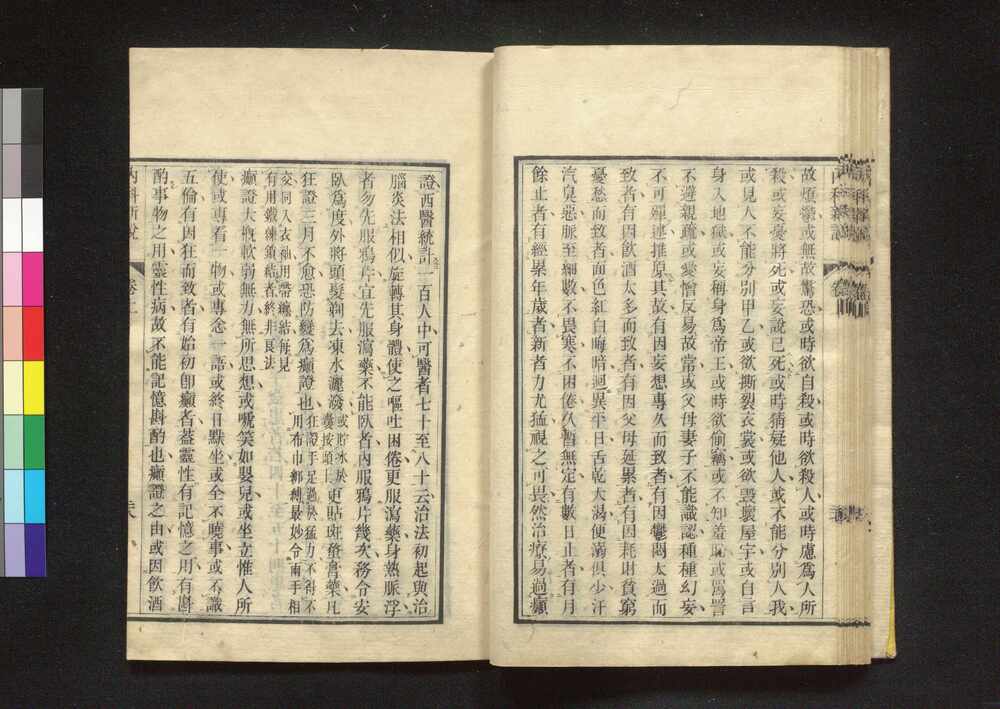 故煩鬱或無故驚恐或時欲自殺或時欲殺人或時慮爲人所
殺或妄憂將死或妄說己死或時猜疑他人或不能分别人我
或見人不能分别甲乙或欲撕裂衣裳或欲毀壞屋宇或自言
身入地獄或妄稱身爲帝王或時欲偷竊或不知羞恥或罵詈
不避親疏或愛憎反易故常或父母妻子不能識認種種幻妄
不可殫述推原其故有因妄想專久而致者有因鬱悶太過而
致者有因飲酒太多而致者有因父母延累者有因耗財貧窮
憂愁而致者面色紅白晦暗迥異平日舌乾大渴便溺俱少汗
汽臭惡脈至細數不畏寒不困倦久暫無定有數日止者有月
餘止者有經累年歲者新者力尤猛視之可畏然治療易過癲
證西醫統計一百人中可醫者七十至八十云治法初起與治
腦炎法相似旋轉其身體使之嘔吐困倦更服瀉藥身熱脈浮
者勿先服鴉片宜先服瀉藥不能臥者內服鴉片幾次務令安
臥爲度外將頭髮剃去凍水灑潑或貯冰於囊按頭上更貼斑蝥膏藥凡
狂證三月不愈恐防變爲癲證也狂證手足過於猛力不得不用布巾綁縛最妙令兩手相
交同入衣袖用帶纏結每見有用鐵鍊鎖結者終非良法
癲證大槪軟弱無力無所思想或嘅笑如嬰兒或坐立惟人所
使或專看一物或專念一語或終日默坐或全不曉事或不識
五倫有因狂而致者有始初卽癲者葢靈性有記憶之用有斟
酌事物之用靈性病故不能記憶斟酌也癲證之由或因飲酒
內科新說
卷上